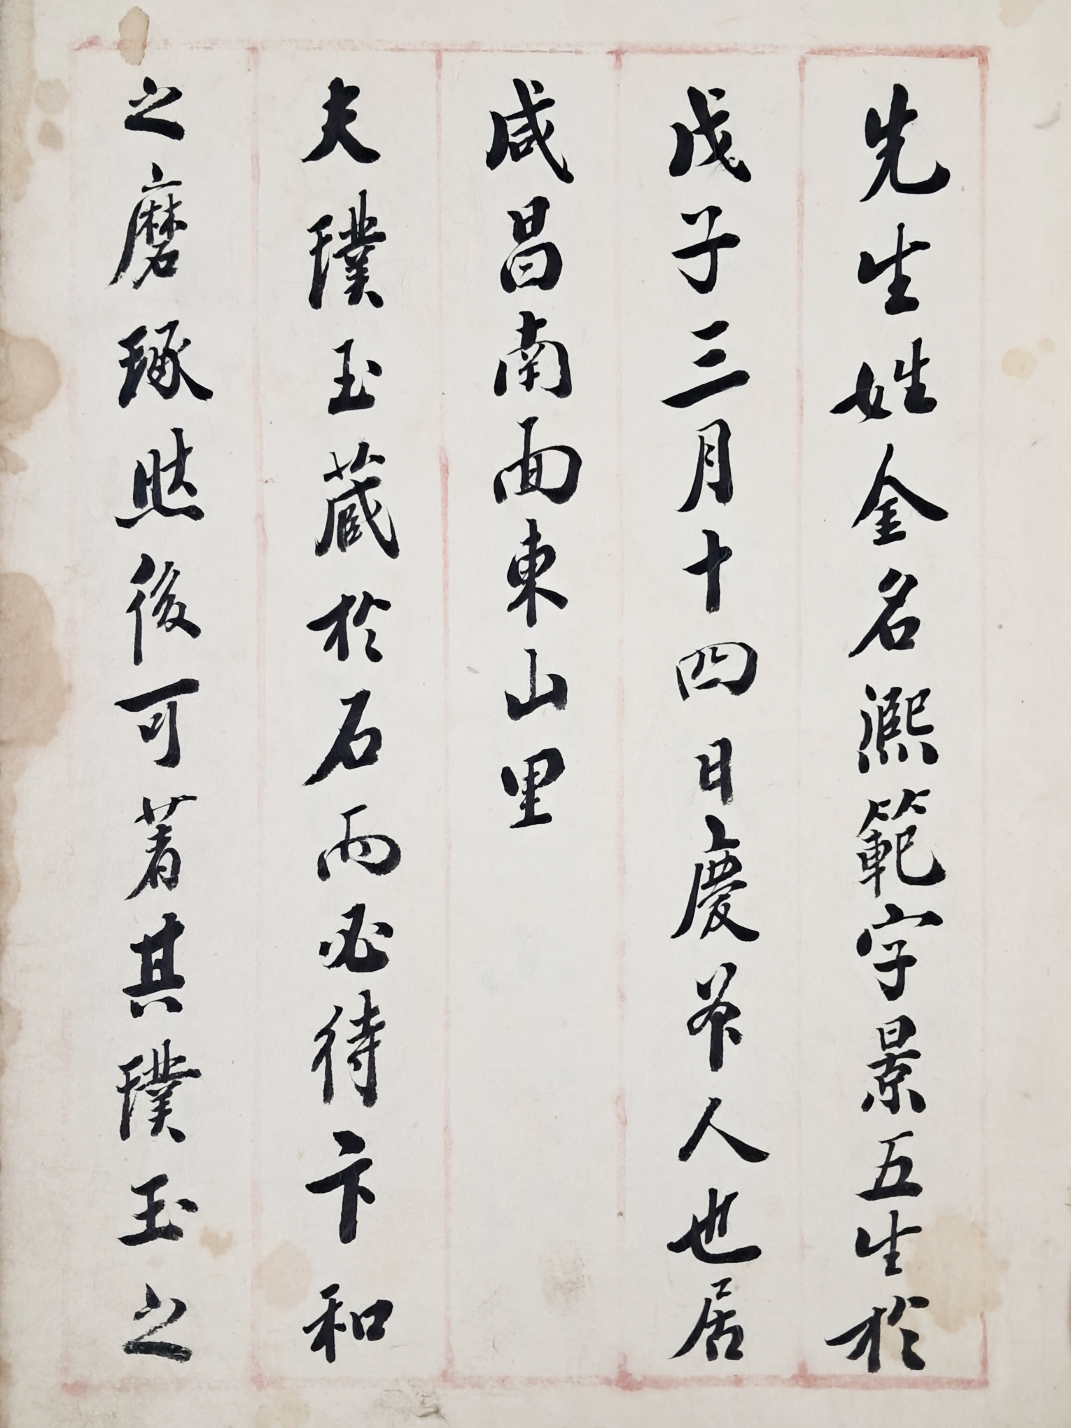 先生姓金名熙範字景五生於
戊子三月十四日慶尒人也居
咸昌南面東山里
夫璞玉蔵於石而必待卞和
之磨琢然後可著其璞玉之